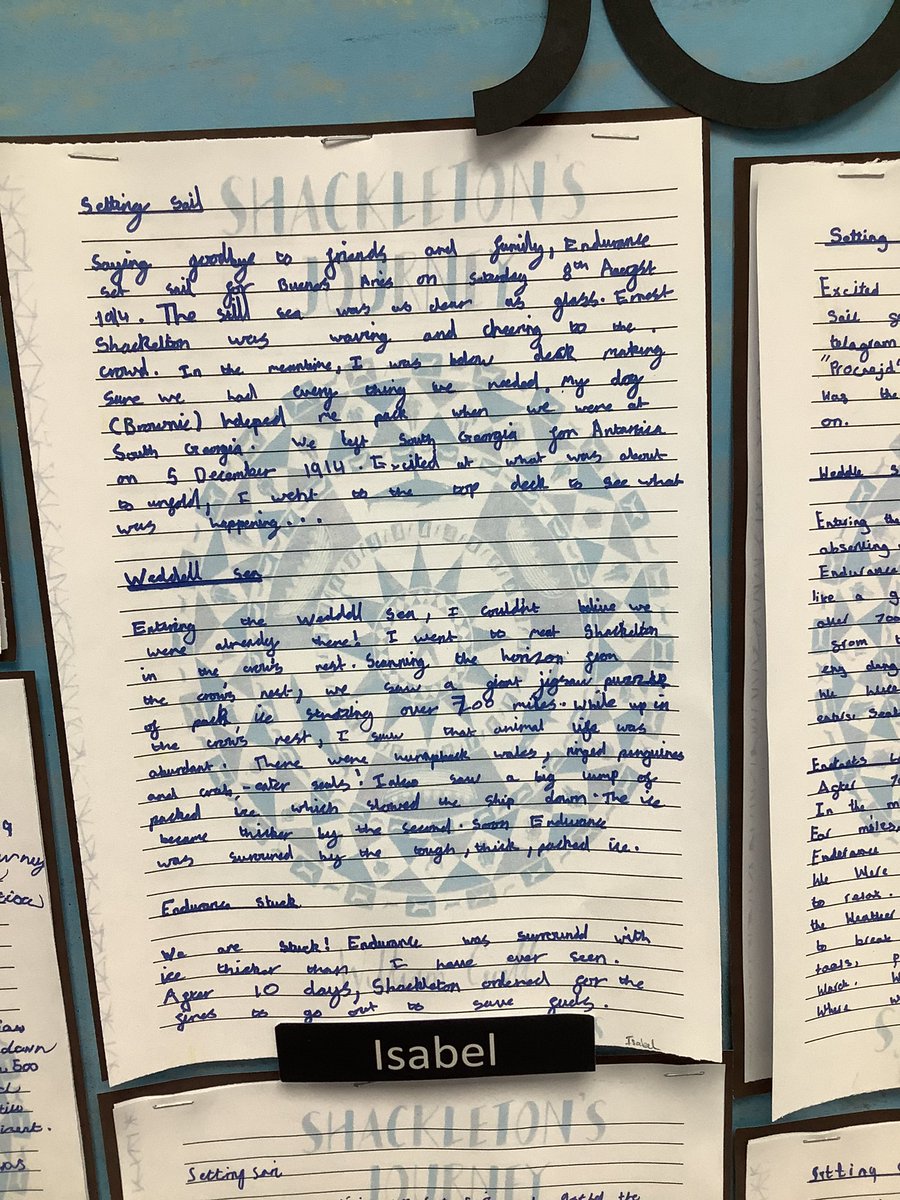 SHACKLETON'S
JOURNEY
Setting Sail
Saying goodbye to friends and family, Endurance
set sail for Buenos Aries on Saterday 8th August
1914. The still sea was as clear as glass. Ernest
Shackelton was waving and cheering to the.
crowd. In the meantime, I was below deck making
sure we had every thing we needed. My dog
(Brownie) heleped me pack when we were at
South Georgia. We left South Georgia for Antartica
on 5 December 1914. Excited at what was about
to unfold, I weht to the top deck to see what
was happening...
Weddell sea
Entering the Weddell sea, I couldn't belive we
were already there! I went to meet Shackelton
in the crow's nest. Scanning the horizon from
the crow's nest, we saw a giant jigsaw puzzle
of pack, ice over 700 miles. While up in
the crow's nest, I saw that animal life was
abundant. There were humpback wales, ringed penguines
and crab,-eater seals! I also saw a big lump of
packed ice which slowed the ship down. The ice
became thicker by the second. Soon Endurance
was suround by the tough, thick, packed ice.
Endurance stuck
We are stuck! Endurance was surround with
ice thicker than I have ever seen.
After 10 days, Shackleton ordered for the
fires to go out to save fuels.
William Grill
Isabel
Isabel
SHACKLETON'S
JOURNEY
Setting Sail
the
Setting
Excited
Sail
telegram
"Proceed"
was the
on.
Weddle S
Entering the
absorbing
Endurance
like a g
over 700
from th
eng dang
We were
eater Seal
After 70
In the m
For miles,
Enderance
We Were
to relax.
the Weather
to break
tools, p
Watch. W
Where w
Setting
9
down
500